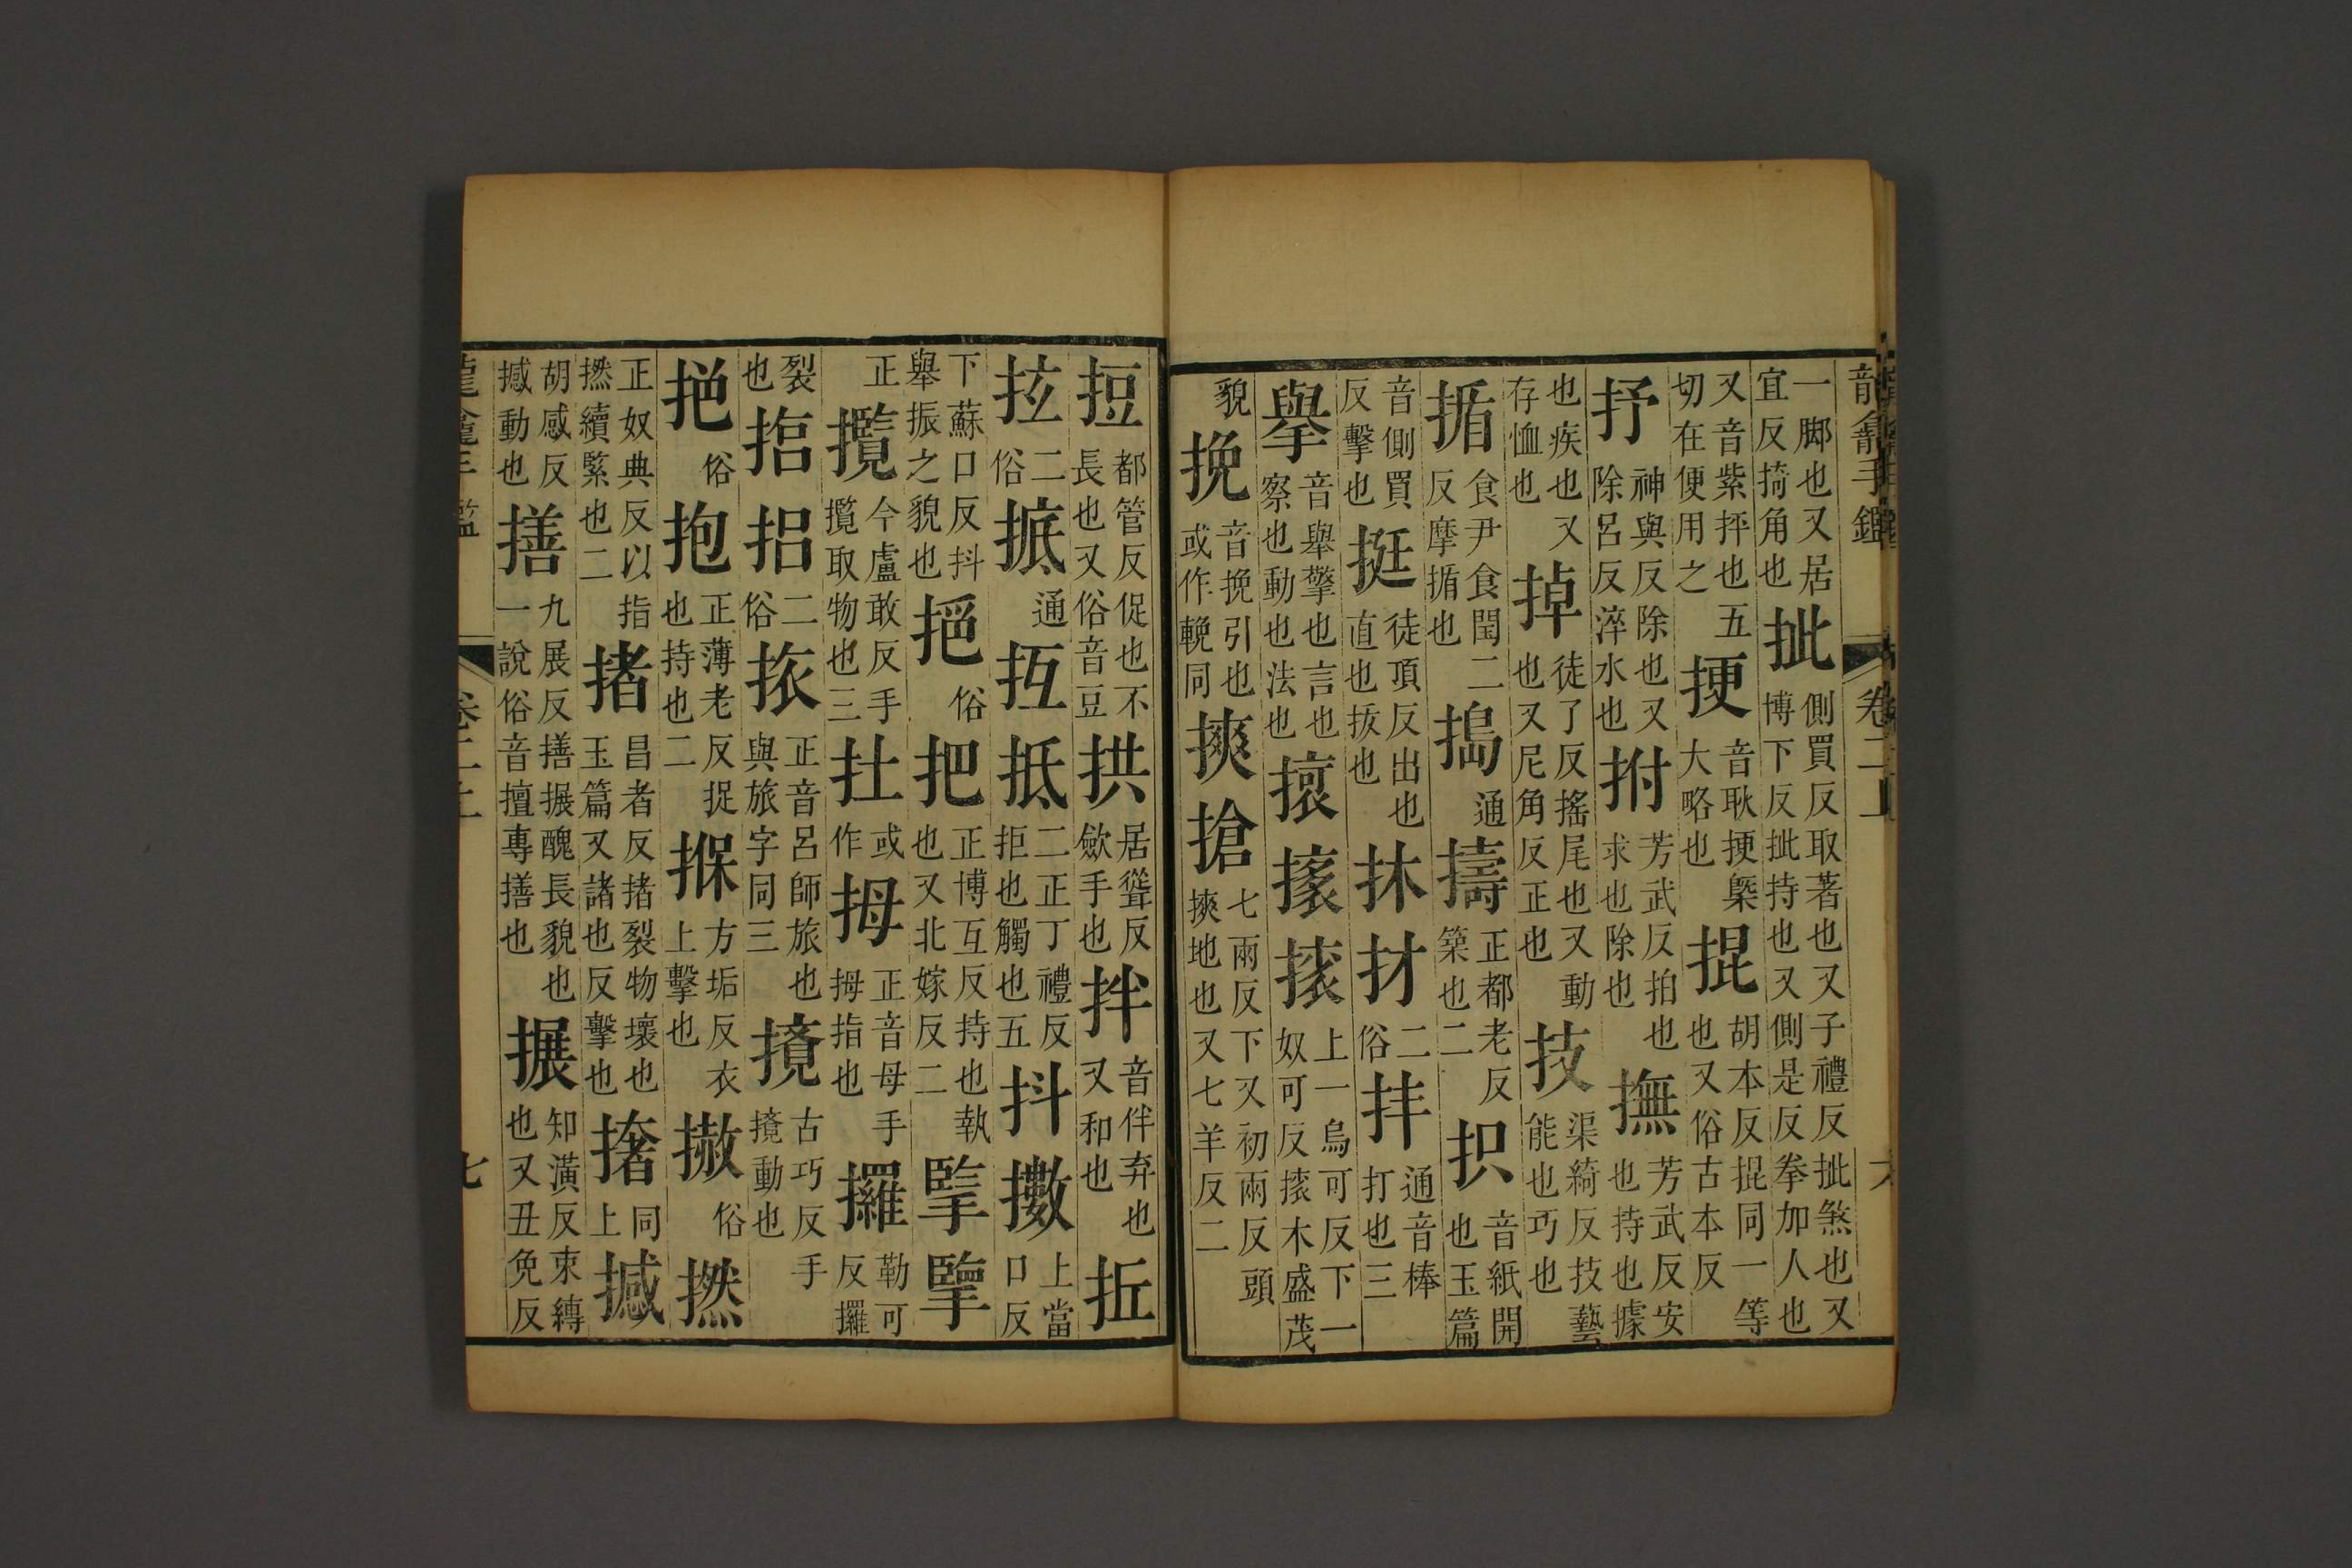 龍龕手鑑 卷二上 六
一脚也又居宜反掎角也 㧗 側買反取著也又子禮反㧗煞也又博下反㧗持也又側是反拳加人也
又音紫抨也五切在便用之 挭 音耿挭槩大略也 掍 胡本反掍同一等也又俗古本反
抒 神與反除也又除呂反淬水也 拊 芳武反拍也求也除也 撫 芳武反安也持也據
也疾也又存恤也 掉 徒了反搖尾也又動也又尼角反正也 技 渠綺反技藝能也巧也
揗 食尹食閏二反摩揗也 搗 通 擣 正都老反築也二 抧 音紙開也玉篇
音側買反擊也 挺 徒頂反出也直也拔也 抹 材 二俗 拝 通音棒打也三
擧 音舉擎也言也察也動也法也 㨤 上一烏可反下一奴可反㨰木盛茂
貌 挽 音挽引也或作輓同 摤 搶 七兩反下又初兩反頭摤地也又七羊反二
䟓 都管反促也不長也又俗音豆 拱 居聳反斂手也 拌 音伴弃也又和也 拞
抎 二俗 掋 通 抳 抵 二正丁禮反拒也觸也五 抖 擻 上當口反
下蘇口反抖舉振之貌也 俗 把 正博互反持也執也又北嫁反二 掔
正 攬 今盧敢反手擥取物也三 扗 或作 拇 正音母手拇指也 攞 勒可反攞
裂也 㨐 挘 二俗 挔 正音呂師旅也與旅字同三 撹 古巧反手撹動也
俗 抱 正薄老反捉也持也二 㨐 方垢反衣上擊也 俗 撚
正奴典反以指撚續緊也二 撦 昌者反撦裂物壞也玉篇又諸也反擊也 㩋 同上 撼
胡感反撼動也 㨔 九展反㨔搌醜長貌也一說俗音擅專㨔也 搌 知演反束縛也又丑免反
龍龕手鑑 卷二上 七